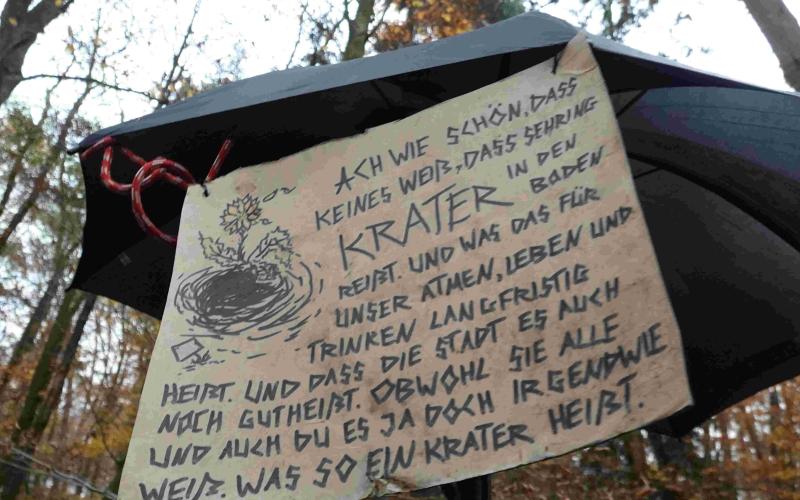 ACH WIE SCHÖN, DASS
KEINES WEIß, DASS SEHRING
KRATER IN DEN BODEN
REIßT. UND WAS DAS FÜR
UNSER ATMEN, LEBEN UND
TRINKEN LANGFRISTIG
HEIßT. UND DASS DIE STADT ES AUCH
NOCH GUTHEIßT. OBWOHL SIE ALLE
UND AUCH DU ES JA DOCH IRGENDWIE
WEIß. WAS SO EIN KRATER HEIßT.